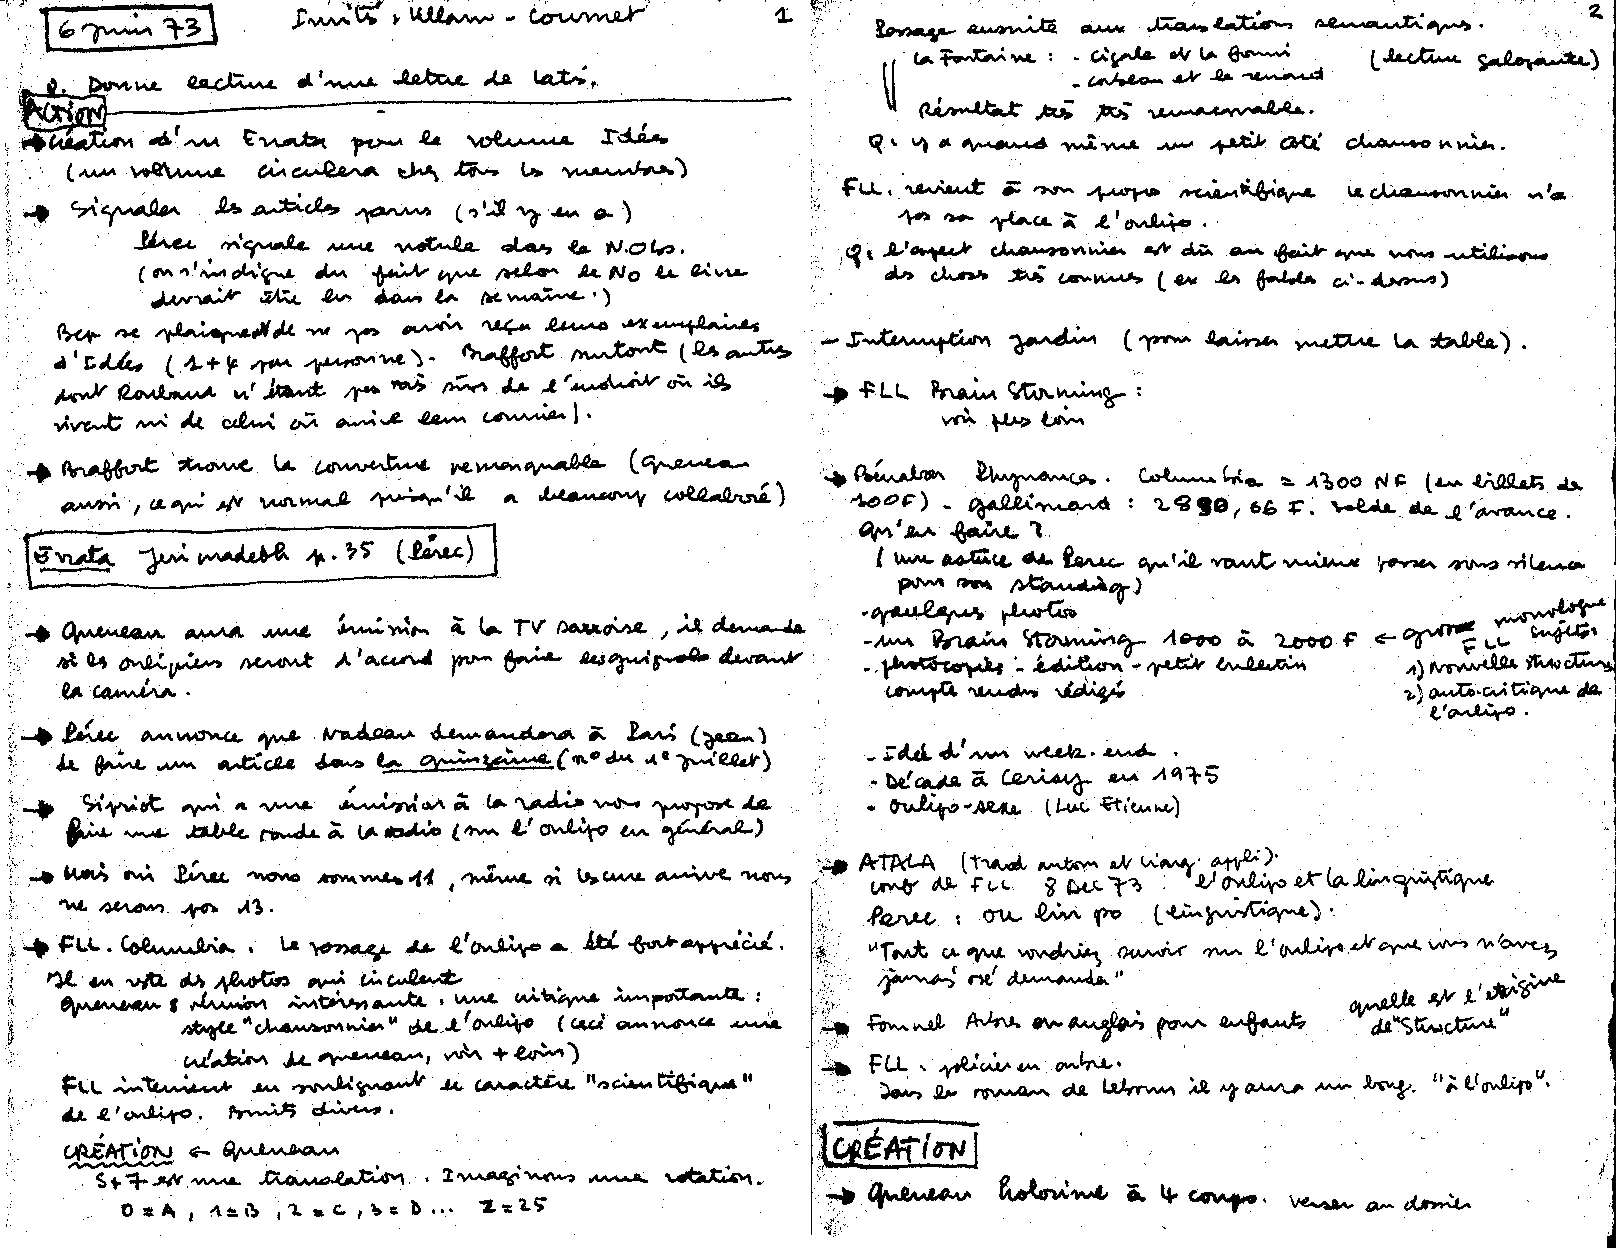 6 Juin 73
Invités : Ullam - Coumet
1
Q. Donne lecture d'une lettre de Latis.
Action
→ Création d'un Errata pour le volume Idées
(un volume circulera chez tous les membres)
→ Signaler les articles parus (s'il y en a)
Pérec signale une notule dans le N.Obs.
(on s'indigne du fait que selon le NO le livre
devrait être lu dans la semaine.)
Bcp se plaignent de ne pas avoir reçu leurs exemplaires
d'Idées (1+4 par personne). Braffort surtout (les autres
dont Roubaud n'étant pas très sûrs de l'endroit où ils
vivent ni de celui où arrive leur courrier).
→ Braffort trouve la couverture remarquable (Queneau
aussi, ce qui est normal puisqu'il a beaucoup collaboré)
Errata Jeri madeth p. 35 (Pérec)
→ Queneau aura une émission à la TV sarroise, il demande
si les oulipiens seront d'accord pour faire les guignols devant
la caméra.
→ Pérec annonce que Nadeau demandera à Paris (Jean)
de faire un article dans la quinzaine (n° du 1e Juillet)
→ Sipriot qui a une émission à la radio nous propose de
faire une table ronde à la radio (sur l'Oulipo en général)
→ Mais oui Pérec nous sommes 11, même si Lescure arrive nous
ne serons pas 13.
→ FLL. Columbia. Le passage de l'oulipo a été fort apprécié.
Il en reste des photos qui circulent
Queneau : réunion intéressante. une critique importante :
style "chansonnier" de l'oulipo (ceci annonce une
création de queneau, voir + loin)
FLL intervient en soulignant le caractère "scientifique"
de l'oulipo. Bruits divers.
CRÉATION ← Queneau
S+7 est une translation. Imaginons une rotation.
0=A, 1=B, 2=C, 3=D... Z=25
2
Passage ensuite aux translations sémantiques.
La Fontaine : - cigale et la fourmi (lecture galopante)
- corbeau et le renard
Résultat très très remarquable.
Q: y a quand même un petit côté chansonnier.
FLL. revient à son propos scientifique le chansonnier n'a
pas sa place à l'oulipo.
Q: l'aspect chansonnier est dû au fait que nous utilisons
des choses très connues (ex les fables ci-dessus)
- Interruption jardin (pour laisser mettre la table).
→ FLL Brain Storming :
voir plus loin
→ Bénabou Phynances. Columbia = 1300 NF (en billets de
100F) - Gallimard : 2890,66 F. solde de l'avance.
Qu'en faire ?
(une astuce de Perec qu'il vaut mieux passer sous silence
pour son standing)
- quelques photos
- un Brain Storming 1000 à 2000 F ← gross monologue
FLL sujets
- photocopies - édition - petit bulletin
1) Nouvelle structure
compte rendus rédigés
2) autocritique de
l'oulipo.
- Idée d'un week-end.
- Décade à Cerisy en 1975
- Oulipo-sexe (Luc Etienne)
→ ATALA (Trad autom et Ling. appli).
conf de FLL 8 Dec 73 : l'Oulipo et la linguistique
Perec : Ou lin po (linguistique).
"Tout ce que voudriez savoir sur l'oulipo et que vous n'avez
jamais osé demander"
quelle est l'origine
de "Structure"
→ Fournel Arbres en anglais pour enfants
→ FLL. policier en arbre.
Dans les roman de Lebrun il y aura un boug. "à l'oulipo".
CRÉATION
→ Queneau holorime à 4 coups. verser au dossier